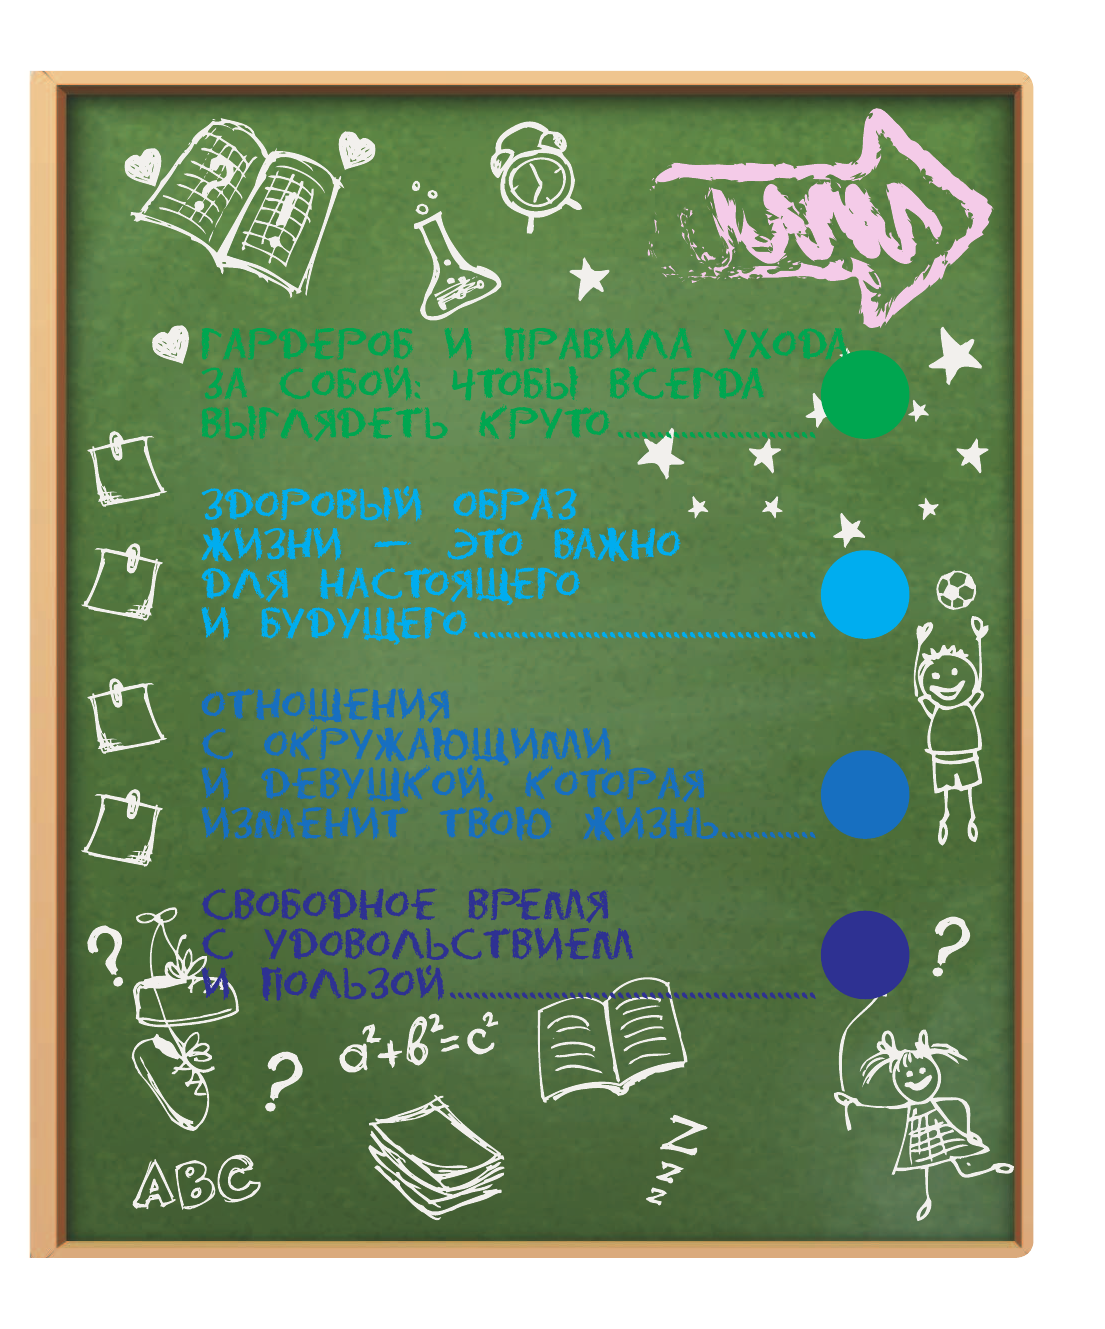 ГАРДЕРОБ И ПРАВИЛА УХОДА
ЗА СОБОЙ: ЧТОБЫ ВСЕГДА
ВЫГЛЯДЕТЬ КРУТО
ЗДОРОВЫЙ ОБРАЗ
ЖИЗНИ — ЭТО ВАЖНО
ДЛЯ НАСТОЯЩЕГО
И БУДУЩЕГО
ОТНОШЕНИЯ
С ОКРУЖАЮЩИМИ
И ДЕВУШКОЙ, КОТОРАЯ
ИЗМЕНИТ ТВОЮ ЖИЗНЬ
СВОБОДНОЕ ВРЕМЯ
С УДОВОЛЬСТВИЕМ
И ПОЛЬЗОЙ
a²+b²=c²
ABC
ZZZZ